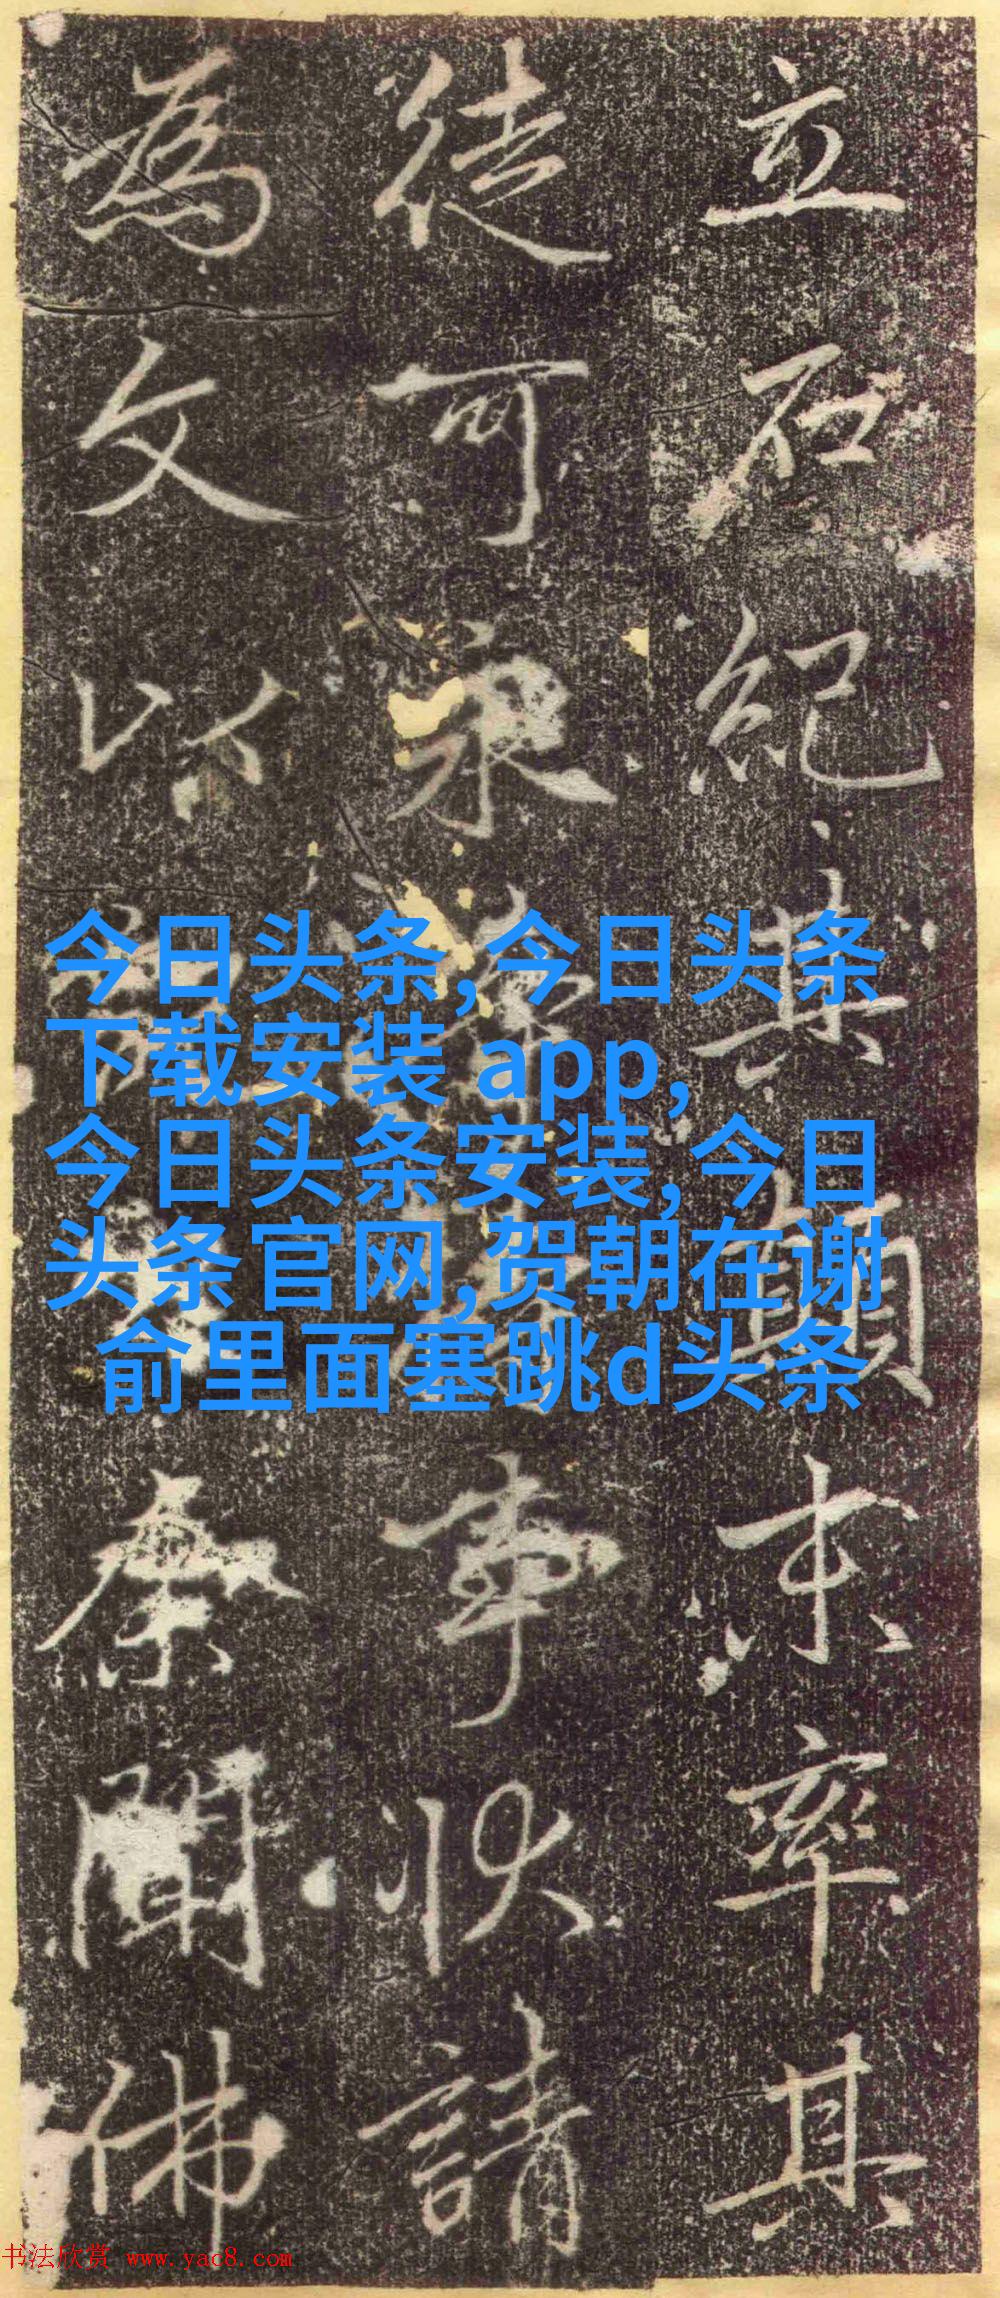 立石紀其顛末率其
徒可永事狀請
為文以聞佛
今日头条,今日头条
下载安装 app,
今日头条安装,今日
头条官网,贺朝在谢
俞里面塞跳d头条
书法欣赏 www.yac8.com